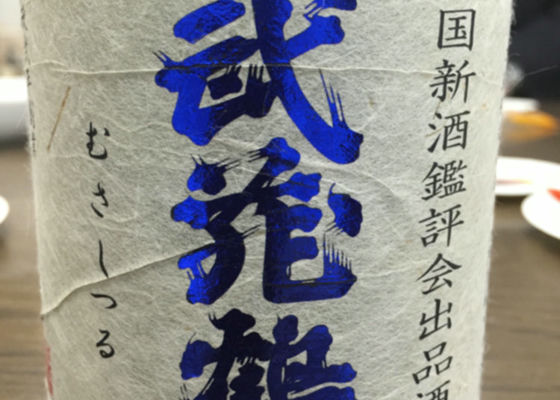 国新酒鑑評会出品酒
武蔵鶴
むさしつる